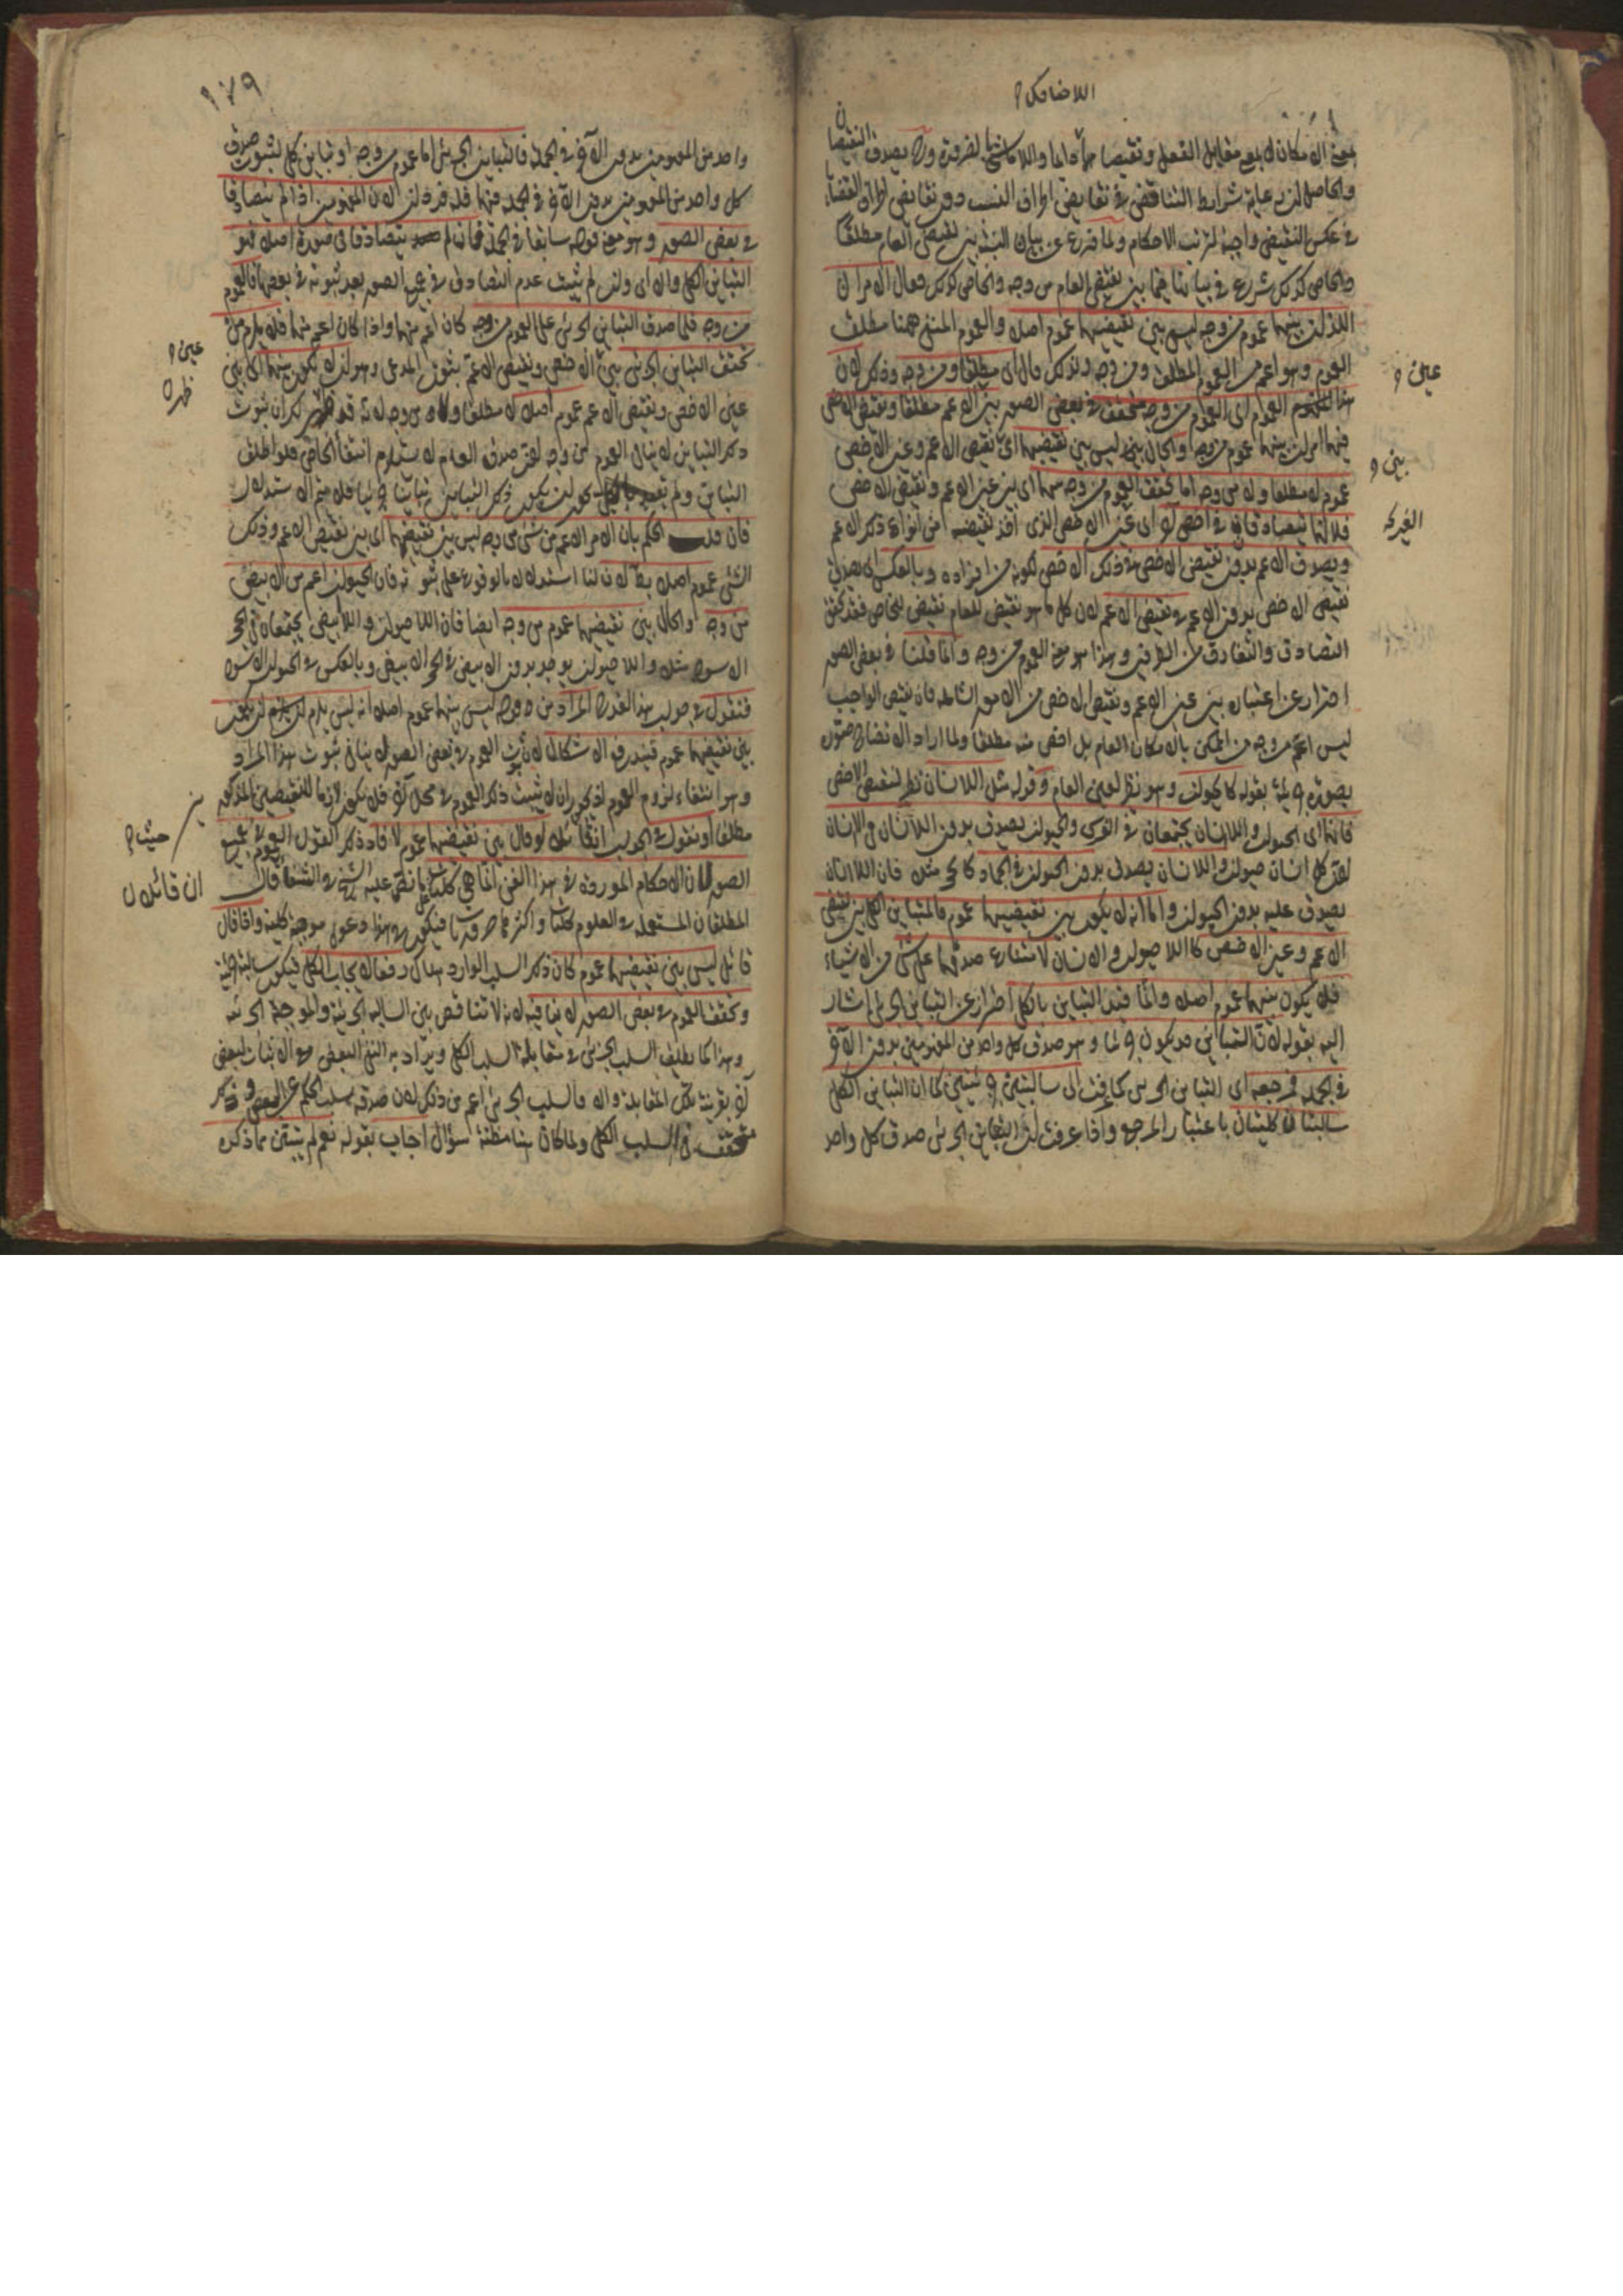 اللاضاحك
بمعنى الامكان لا بمعنى مقابل الفعل ونقيضاهما دائما واللاماشى بالضرورة ولا يصدق النقيضان
والحاصل ان رعاية شرايط التناقض في نقايض اطراف النسب دون نقايض اطراف القضايا
في عكس النقيض واجبة لترتب الاحكام ولما فرغ عن بيان النسبة بين نقيضى العام مطلقا
والخاص كذلك شرع في بيانها فيما بين نقيضى العام من وجه والخاص كذلك فقال الامران
اللذان بينهما عموم من وجه ليس بين نقيضيهما عموم اصلا والعموم المنفى ههنا مطلق
العموم وهو اعم من العموم المطلق ومن وجه ولذلك قال اى مطلقا ومن وجه وذلك لان
هذا العموم اى العموم من وجه متحقق في بعض الصور بين الاعم مطلقا ونقيض الاخص
فيهما امران بينهما عموم من وجه والحال انه ليس بين نقيضيهما اى نقيض الاعم وعين الاخص
عموم لا مطلقا ولا من وجه اما تحقق العموم من وجه بينهما اى بين عين الاعم ونقيض الاخص
فلانهما يتصادقان في اخص آخر اى غير الاخص الذى اخذ نقيضه من انواع ذلك الاعم
ويصدق الاعم بدون نقيض الاخص في ذلك الاخص لكونه من افراده وبالعكس اى يصدق
نقيض الاخص بدون الاعم في نقيض الاعم لان كل ما هو نقيض للعام نقيض للخاص فقد تحقق
التصادق والتفارق من الطرفين وهذا هو معنى العموم من وجه وانما قلنا في بعض الصور
احترازا عن اعتباره بين عين الاعم ونقيض الاخص من الامور الشاملة فان نقيض الواجب
ليس اعم من وجه من الممكن بالامكان العام بل اخص منه مطلقا ولما اراد الايضاح صوره
بصورة جزئية بقوله كالحيوان وهو نظير لعين العام وقوله مثل اللاانسان نظير لنقيض الاخص
فانهما اى الحيوان واللاانسان يجتمعان في الفرس والحيوان يصدق بدون اللاانسان في الانسان
لان كل انسان حيوان واللاانسان يصدق بدون الحيوان في الجماد كالحجر مثلا فان اللاانسان
يصدق عليه بدون الحيوان واما انه لا يكون بين نقيضيهما عموم فللتباين الكلى بين نقيض
الاعم وعين الاخص كاللاحيوان والانسان لامتناع صدقهما على شئ من الاشياء
فلا يكون بينهما عموم اصلا وانما قيد التباين بالكلى احترازا عن التباين الجزئى اشار
اليه بقوله لان التباين قد يكون جزئيا وهو صدق كل واحد من المفهومين بدون الآخر
في الجملة فمرجعه اى التباين الجزئى كما عرفت الى سالبتين جزئيتين كما ان التباين الكلى
سالبتان كليتان باعتبار المرجع واذا عرفت ان التباين الجزئى صدق كل واحد
عين
بين
الغير كه
١٧٩
واحد من المفهومين بدون الآخر في الجملة فالتباين الجزئى اما عموم من وجه او تباين كلى لثبوت صدق
كل واحد من المفهومين بدون الآخر في الجملة فيهما قلت قد ذكر لان المفهومين اذا لم يتصادقا
في بعض الصور وهو معنى قوله سابقا في الجملة فان لم يتصادقا في صورة اصلا فهو
التباين الكلى والا اى وان لم يثبت عدم التصادق في جميع الصور بعد ثبوته في بعضها فالعموم
من وجه فلما صدق التباين الجزئى على العموم من وجه كان اعم منهما واذا كان اعم منهما فلا يلزم من
تحقق التباين الجزئى بين الاخص ونقيض الاعم ثبوت المدعى وهو ان لا يكون بينهما اى بين
عين الاخص ونقيض الاعم عموم اصلا لا مطلقا ولا من وجه لانه قد ظهر لك ان ثبوت
ذلك التباين لا ينافى العموم من وجه لان صدق العام لا يستلزم انتفاء الخاص فلو اطلق
التباين ولم يقيد بالكلى لجاز ان يكون ذلك التباين تباينا جزئيا فلا يتم الاستدلال
فان قلت الحكم بان الامر الاعم من شئ من وجه ليس بين نقيضيهما اى بين نقيض الاعم وذلك
الشئ عموم اصلا باطل لان لنا استدلالا بالوقوع على ثبوته فان الحيوان اعم من الابيض
من وجه والحال بين نقيضيهما عموم من وجه ايضا فان اللاحيوان واللاابيض يجتمعان في الحجر
الاسود مثلا واللاحيوان يوجد بدون الابيض في الحجر الابيض وبالعكس في الحيوان الاسود
فنقول في جواب هذا القدح المراد من قوله ليس بينهما عموم اصلا انه ليس يلزم ان يكون
بين نقيضيهما عموم فيندفع الاشكال لان ثبوت العموم في بعض الصور لا ينافى ثبوت هذا المراد
وهو انتفاء لزوم العموم اذ يكفى ان لا يثبت ذلك العموم في محل آخر فلا يكون لازما للنقيضين المذكورين
مطلقا او نقول في الجواب ان قائلا لو قال بين نقيضيهما عموم لافاد ذلك القول العموم في جميع
الصور لان الاحكام الموردة في هذا الفن انما هى كليات كما نص عليه الشيخ في الشفا قال
المطلقات المستعملة في العلوم كليات واكثرها ضروريات فيكون هذا دعوى موجبة كلية واذا قال
قائل ليس بين نقيضيهما عموم كان ذلك السلب الوارد هناك رفعا للايجاب الكلى فيكون سالبة جزئية
وتحقق العموم في بعض الصور لا ينافيه لانه لا تناقض بين السالبة الجزئية والموجبة الجزئية
وهذا كما يطلق السلب الجزئى في مقابلة السلب الكلى ويراد به النفى البعض مع الاثبات لبعض
آخر بقرينة تلك المقابلة والا فالسلب الجزئى اعم من ذلك لان صدقه بسلب الحكم عن البعض وذلك
متحقق في السلب الكلى ولما كان هنا مظنة سؤال اجاب بقوله نعم لم يتبين مما ذكره
عين
ظهر
بين
حيث
ان قائلا